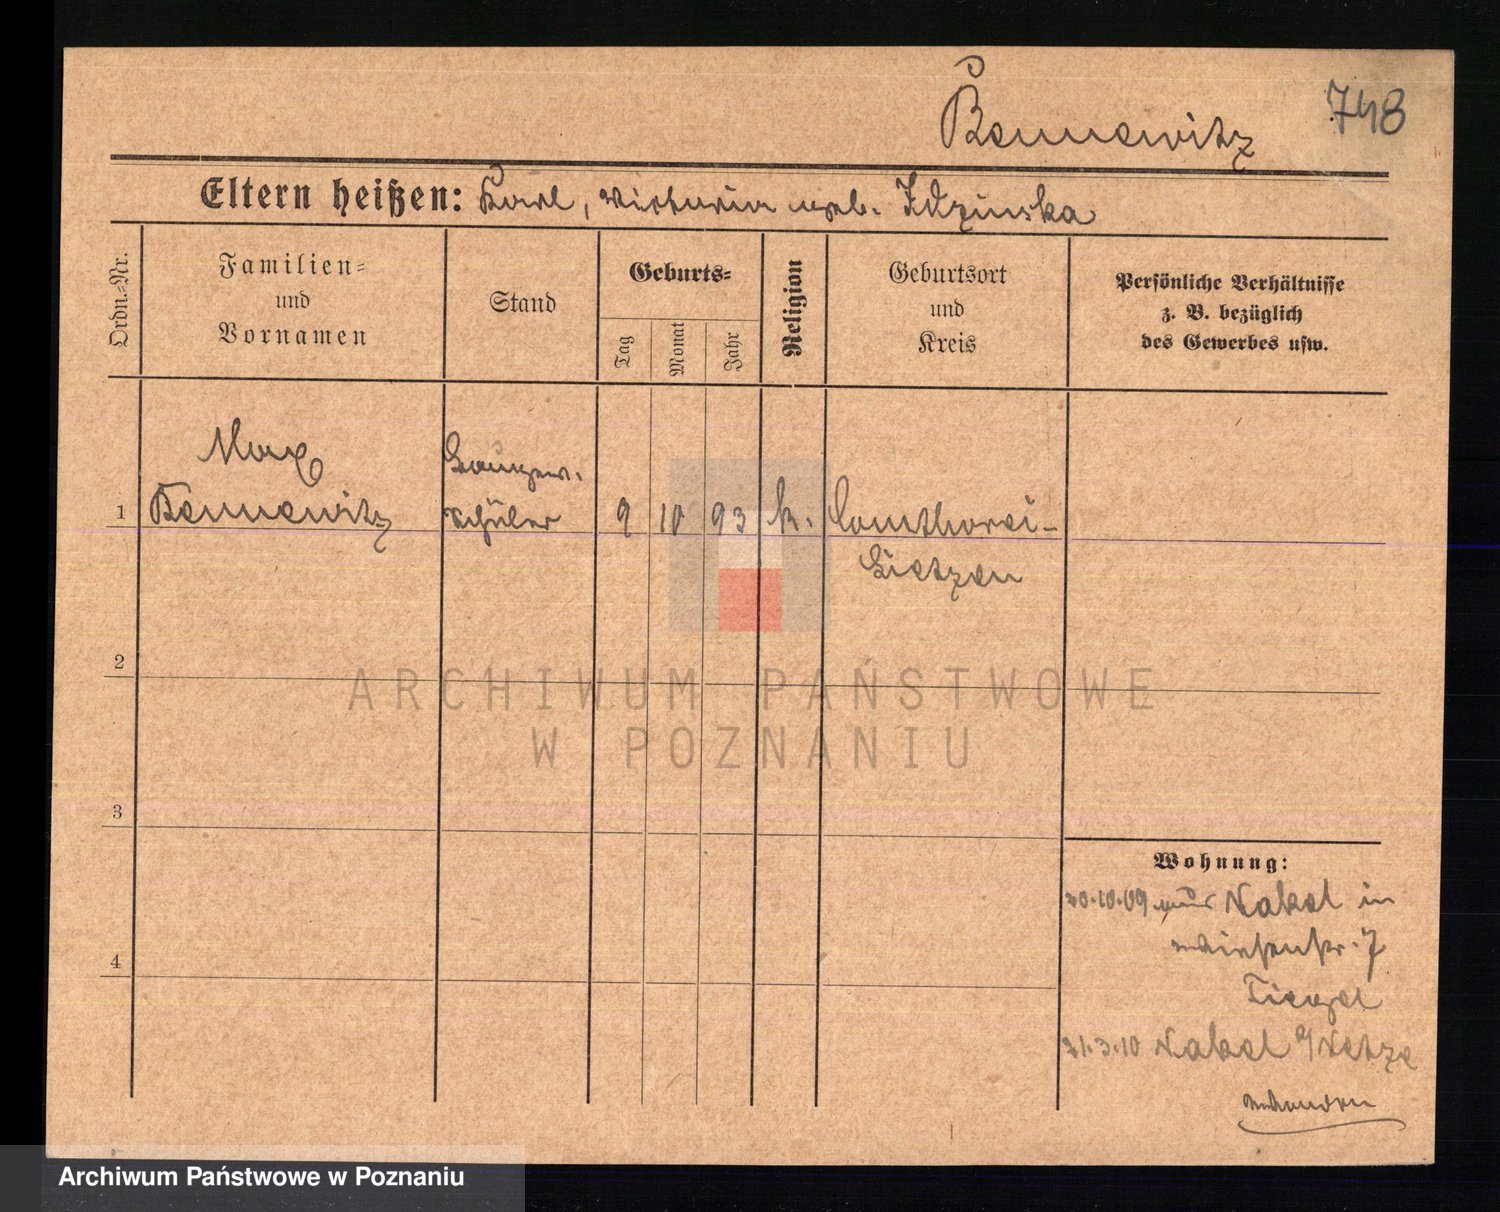 Bennewitz
748
Eltern heißen: Karl, Victoria geb. Idzinska
Ordn.-Nr.
Familien-
und
Vornamen
Stand
Geburts-
Tag
Monat
Jahr
Religion
Geburtsort
und
Kreis
Persönliche Verhältnisse
z. B. bezüglich
des Gewerbes usw.
Max
Baugew.
1 Bennewitz schüler 9 10 93 k. Comthorei-
Lietzen
2
ARCHIWUM PAŃSTWOWE
W POZNANIU
3
Wohnung:
20.10.09 aus Nakel in
str. 7
4
21.3.10 Nakel a/Netze
Archiwum Państwowe w Poznaniu